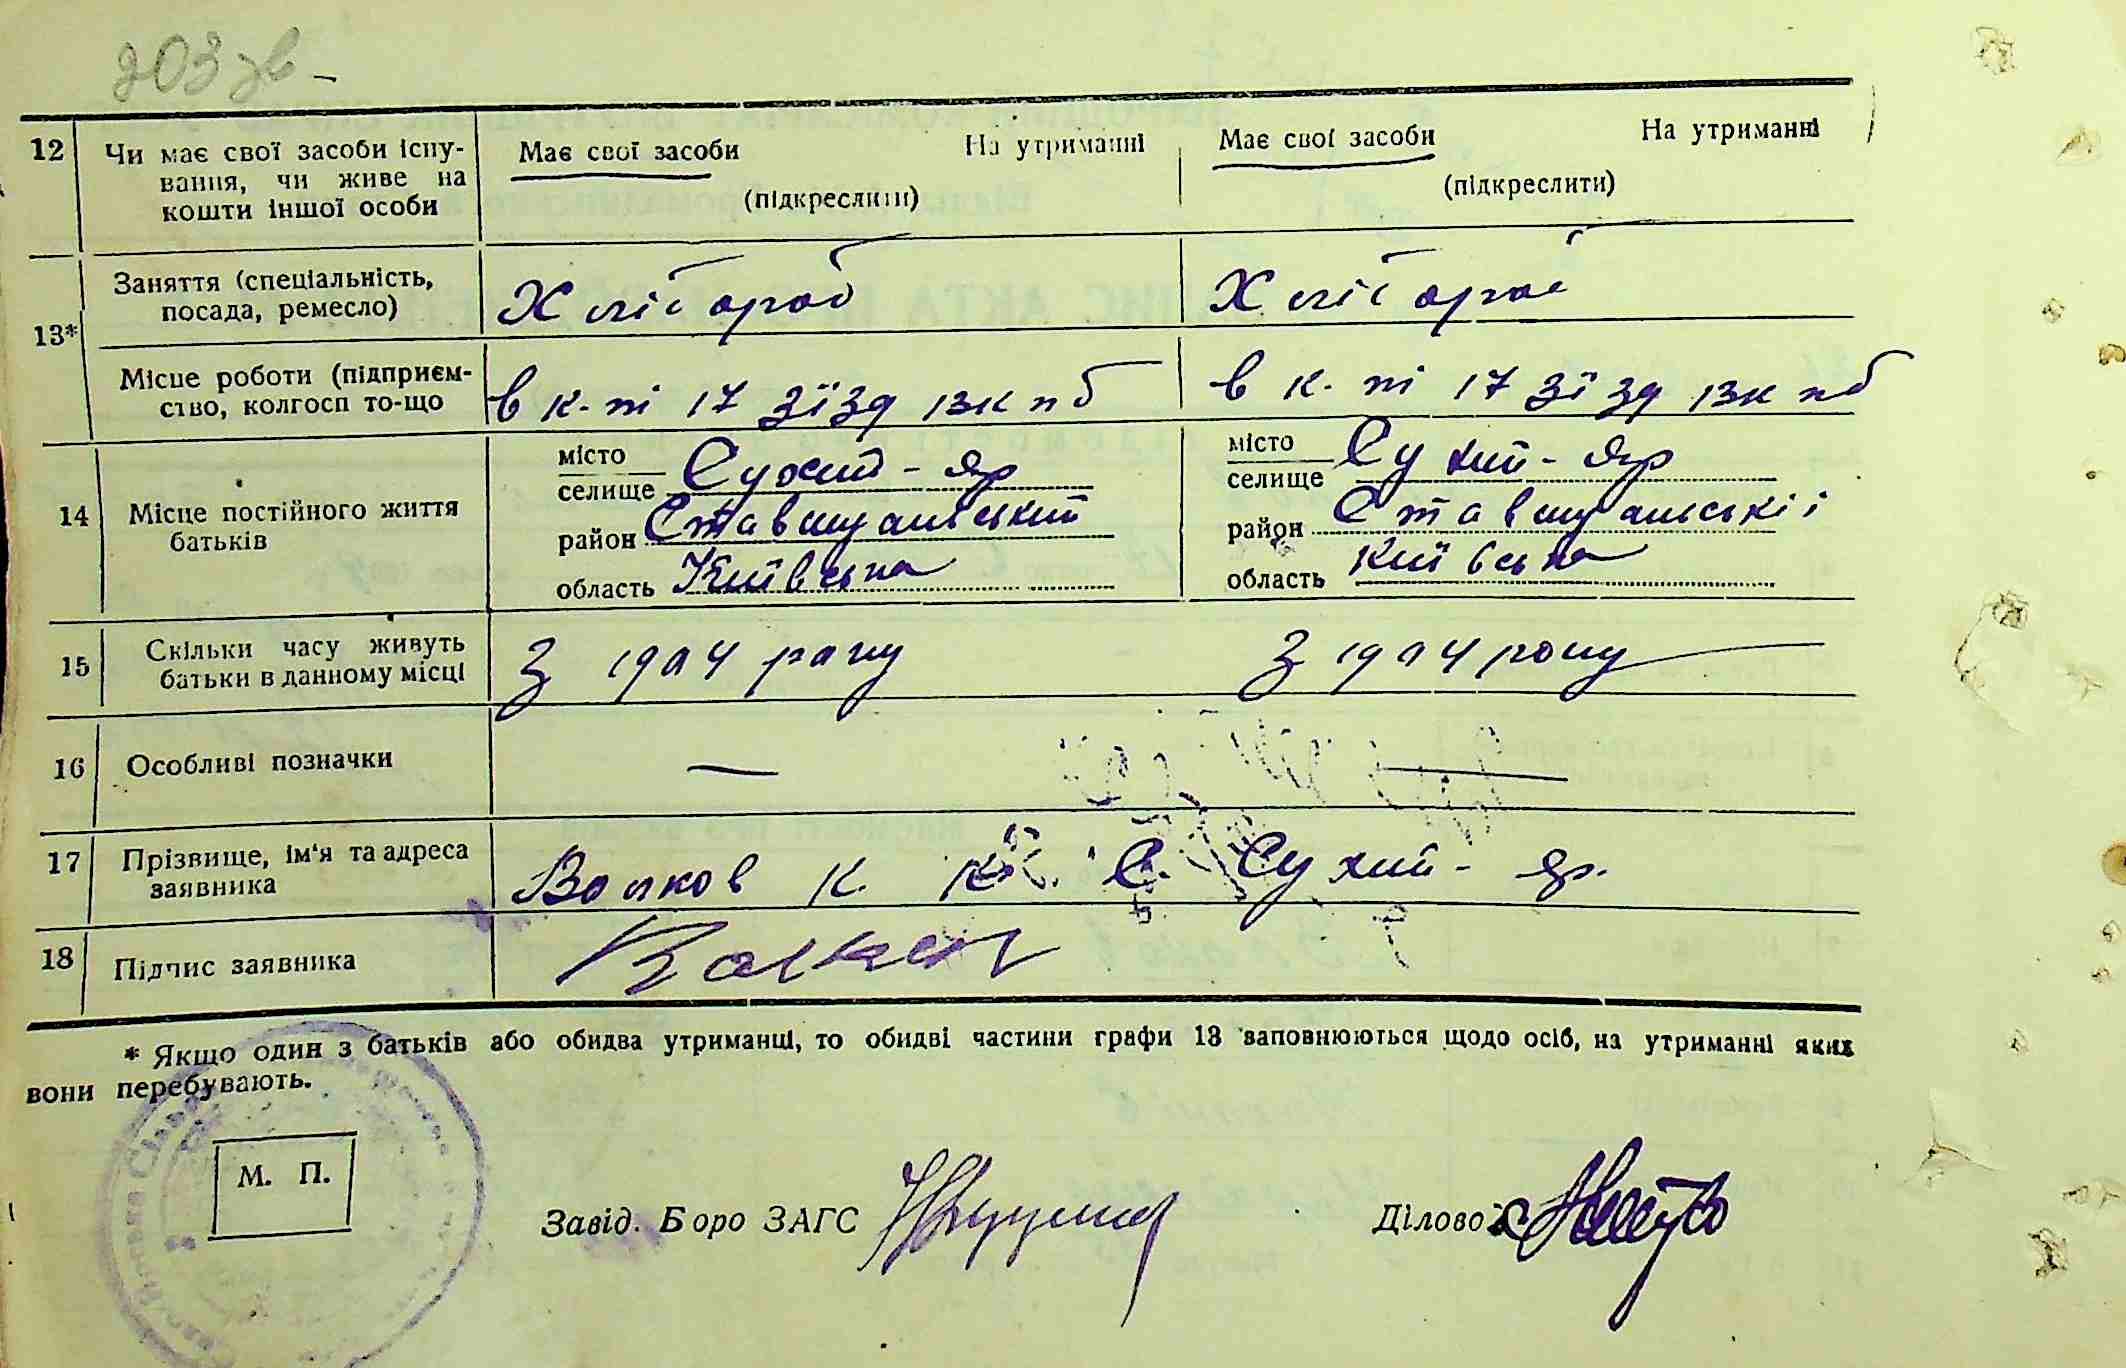 203 зв
12 Чи має свої засоби існу-
вання, чи живе на
кошти іншої особи
Має свої засоби На утриманні
(підкреслити)
Має свої засоби На утриманні
(підкреслити)
13*
Заняття (спеціальність,
посада, ремесло)
Хлібороб Хлібороб
Місце роботи (підприєм-
ство, колгосп то-що
в к-пі 17 зїзд вкпб в к-пі 17 зїзд вкпб
14 Місце постійного життя
батьків
місто
селище Сухий-яр
район Ставищанський
область Київська
місто
селище Сухий-яр
район Ставищанські
область Київська
15 Скільки часу живуть
батьки в данному місці
З 1904 року З 1904 року
16 Особливі позначки — —
17 Прізвище, ім'я та адреса
заявника
Волков К. К. С. Сухий-яр.
18 Підпис заявника Волков
* Якщо один з батьків або обидва утриманці, то обидві частини графи 13 заповнюються щодо осіб, на утриманні яких
вони перебувають.
М. П.
Завід. Боро ЗАГС
Діловод